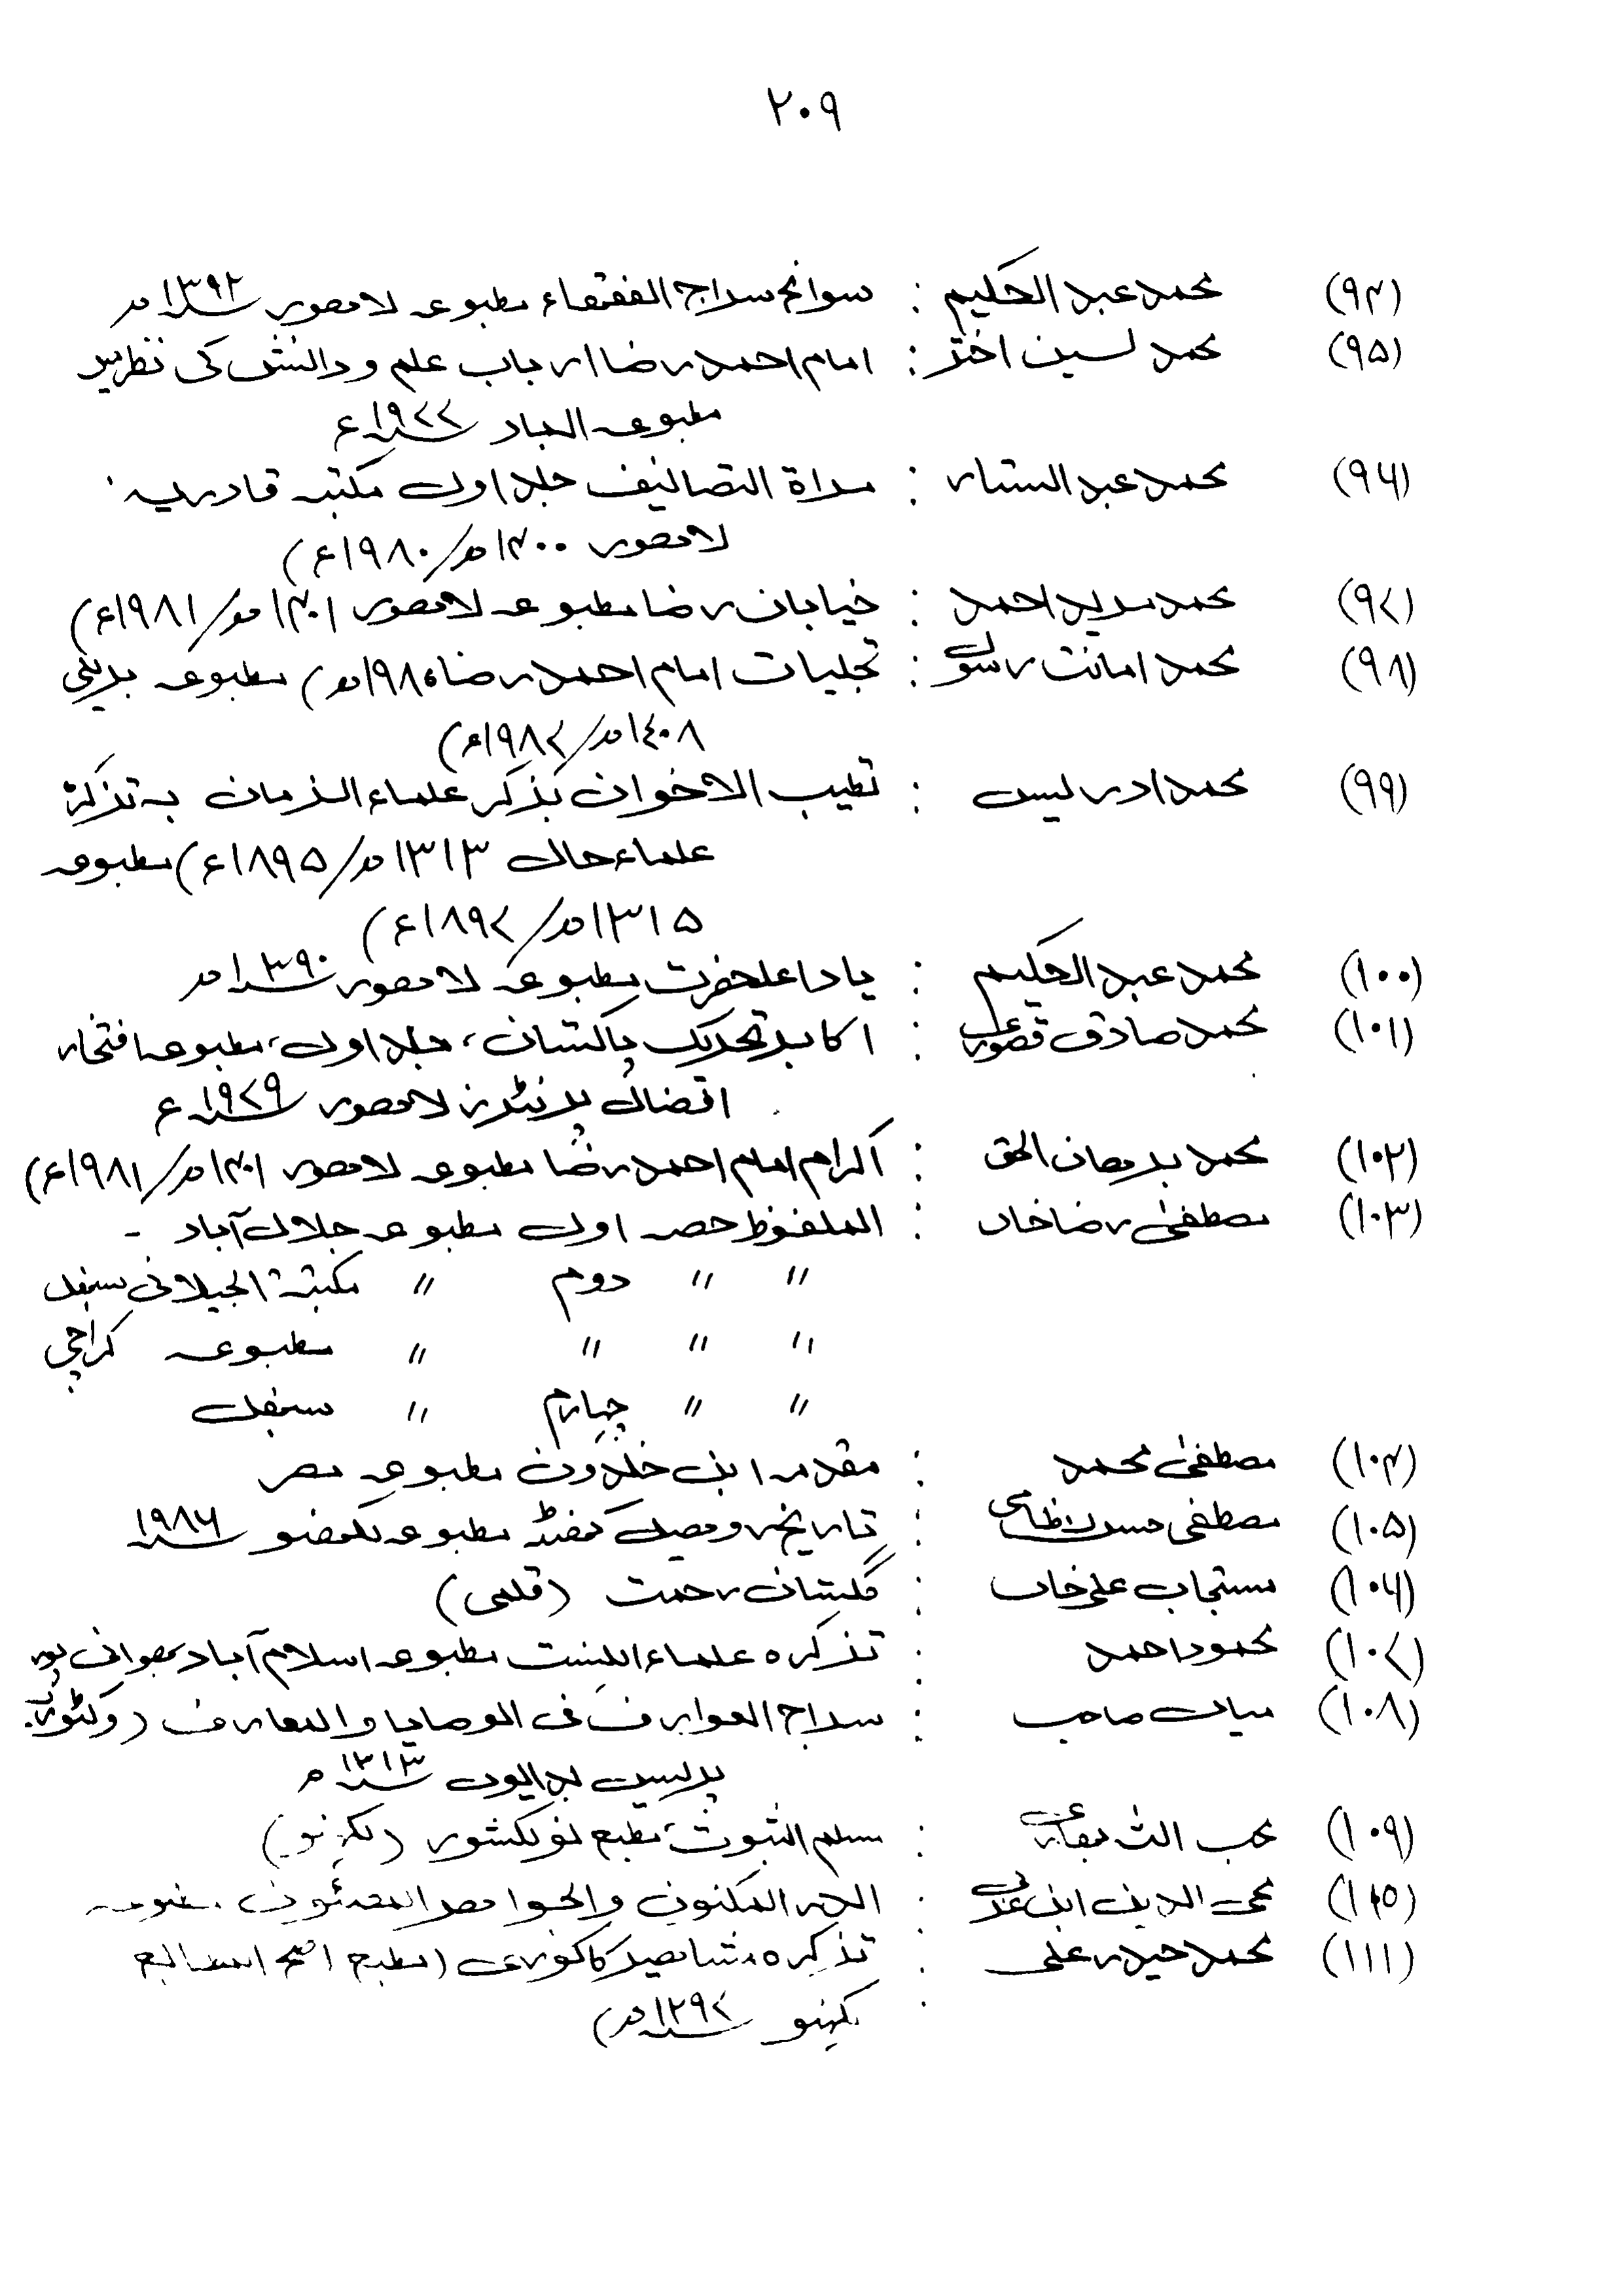 ۲۰۹
(۹۴) محمد عبد الحکیم : سوانح سراج الفقہاء مطبوعہ لاہور ۱۳۹۲ھ
(۹۵) محمد یسین اختر : امام احمد رضا ارباب علم و دانش کی نظر میں
مطبوعہ الہ آباد ۱۹۷۷ء
(۹۶) محمد عبد الستار : مراة التصانیف جلد اول مکتبہ قادریہ
لاہور ۱۴۰۰ھ/۱۹۸۰ء)
(۹۷) محمد مرید احمد : خیابان رضا مطبوعہ لاہور ۱۴۰۱ھ/۱۹۸۱ء)
(۹۸) محمد امانت رسول : تجلیات امام احمد رضا ۱۹۸۵ھ) مطبوعہ بریلی
۱۴۰۸ھ/۱۹۸۷ء)
(۹۹) محمد ادریس : تطیب الاخوان بذکر علماء الزمان بہ تذکرۃ
علماء حال ۱۳۱۳ھ/۱۸۹۵ء) مطبوعہ
۱۳۱۵ھ/۱۸۹۷ء)
(۱۰۰) محمد عبد الحکیم : یاد اعلحضرت مطبوعہ لاہور ۱۳۹۰ھ
(۱۰۱) محمد صادق قصوری : اکابر تحریک پاکستان، جلد اول، مطبوعہ افتخار
افضال پرنٹرز لاہور ۱۹۷۹ء
(۱۰۲) محمد برھان الحق : اکرام امام احمد رضا مطبوعہ لاہور ۱۴۰۱ھ/۱۹۸۱ء)
(۱۰۳) مصطفیٰ رضا خاں : الملفوظ حصہ اول مطبوعہ جلال آباد -
〃 〃 دوم 〃 مکتبۃ الجیلانی سنبھل
〃 〃 〃 〃 مطبوعہ کراچی
〃 〃 چہارم 〃 سنبھل
(۱۰۴) مصطفیٰ محمد : مقدمہ ابن خلدون مطبوعہ مصر
(۱۰۵) مصطفی حسن نظامی : تاریخ روھیل کھنڈ مطبوعہ لکھنو ۱۹۸۶
(۱۰۶) مستجاب علی خاں : گلستان رحمت (قلمی)
(۱۰۷) محمود احمد : تذکرہ علماء اہلسنت مطبوعہ اسلام آباد بھوانی پور
(۱۰۸) میاں صاحب : سراج العوارف فی الوصایا والمعارف (وکٹوریہ
پریس بدایوں ۱۳۱۳ھ
(۱۰۹) محب اللہ بہاری : مسلم الثبوت، مطبع نولکشور (لکھنو)
(۱۱۰) محی الدین ابن عربی : الدر المکنون والجواھر المصئون
(۱۱۱) محمد حیدر علی : تذکرہ مشاھیر کاکوری (مطبع اصح المطابع
لکھنو ۱۲۹۷ھ)